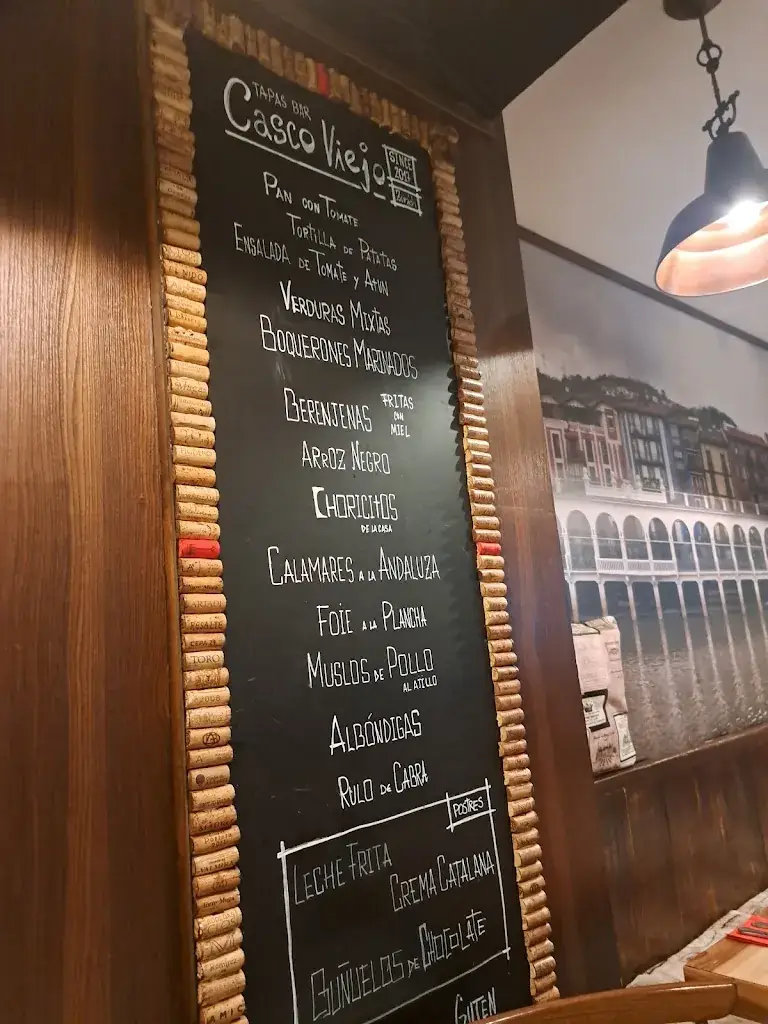 TAPAS BAR
Casco Viejo
SINCE
2017
PAN CON TOMATE
TORTILLA DE PATATAS
ENSALADA DE TOMATE Y ATUN
VERDURAS MIXTAS
BOQUERONES MARINADOS
BERENJENAS FRITAS
CON
MIEL
ARROZ NEGRO
CHORICITOS
DE LA CASA
CALAMARES A LA ANDALUZA
FOIE A LA PLANCHA
MUSLOS DE POLLO
AL AJILLO
ALBÓNDIGAS
RULO DE CABRA
POSTRES
LECHE FRITA
CREMA CATALANA
BUÑUELOS DE CHOCOLATE
GUTEN
TORO